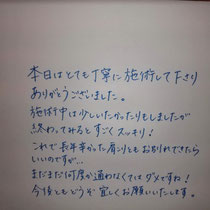 本日はとても丁寧に施術して下さり
ありがとうございました。
施術中は少しいたかったりもしましたが
終わってみるとすごくスッキリ！
これで長年辛かった肩こりともお別れできたら
いいのですが…
まだまだ何度か通わなくてはダメですね！
今後ともどうぞ宜しくお願いいたします。